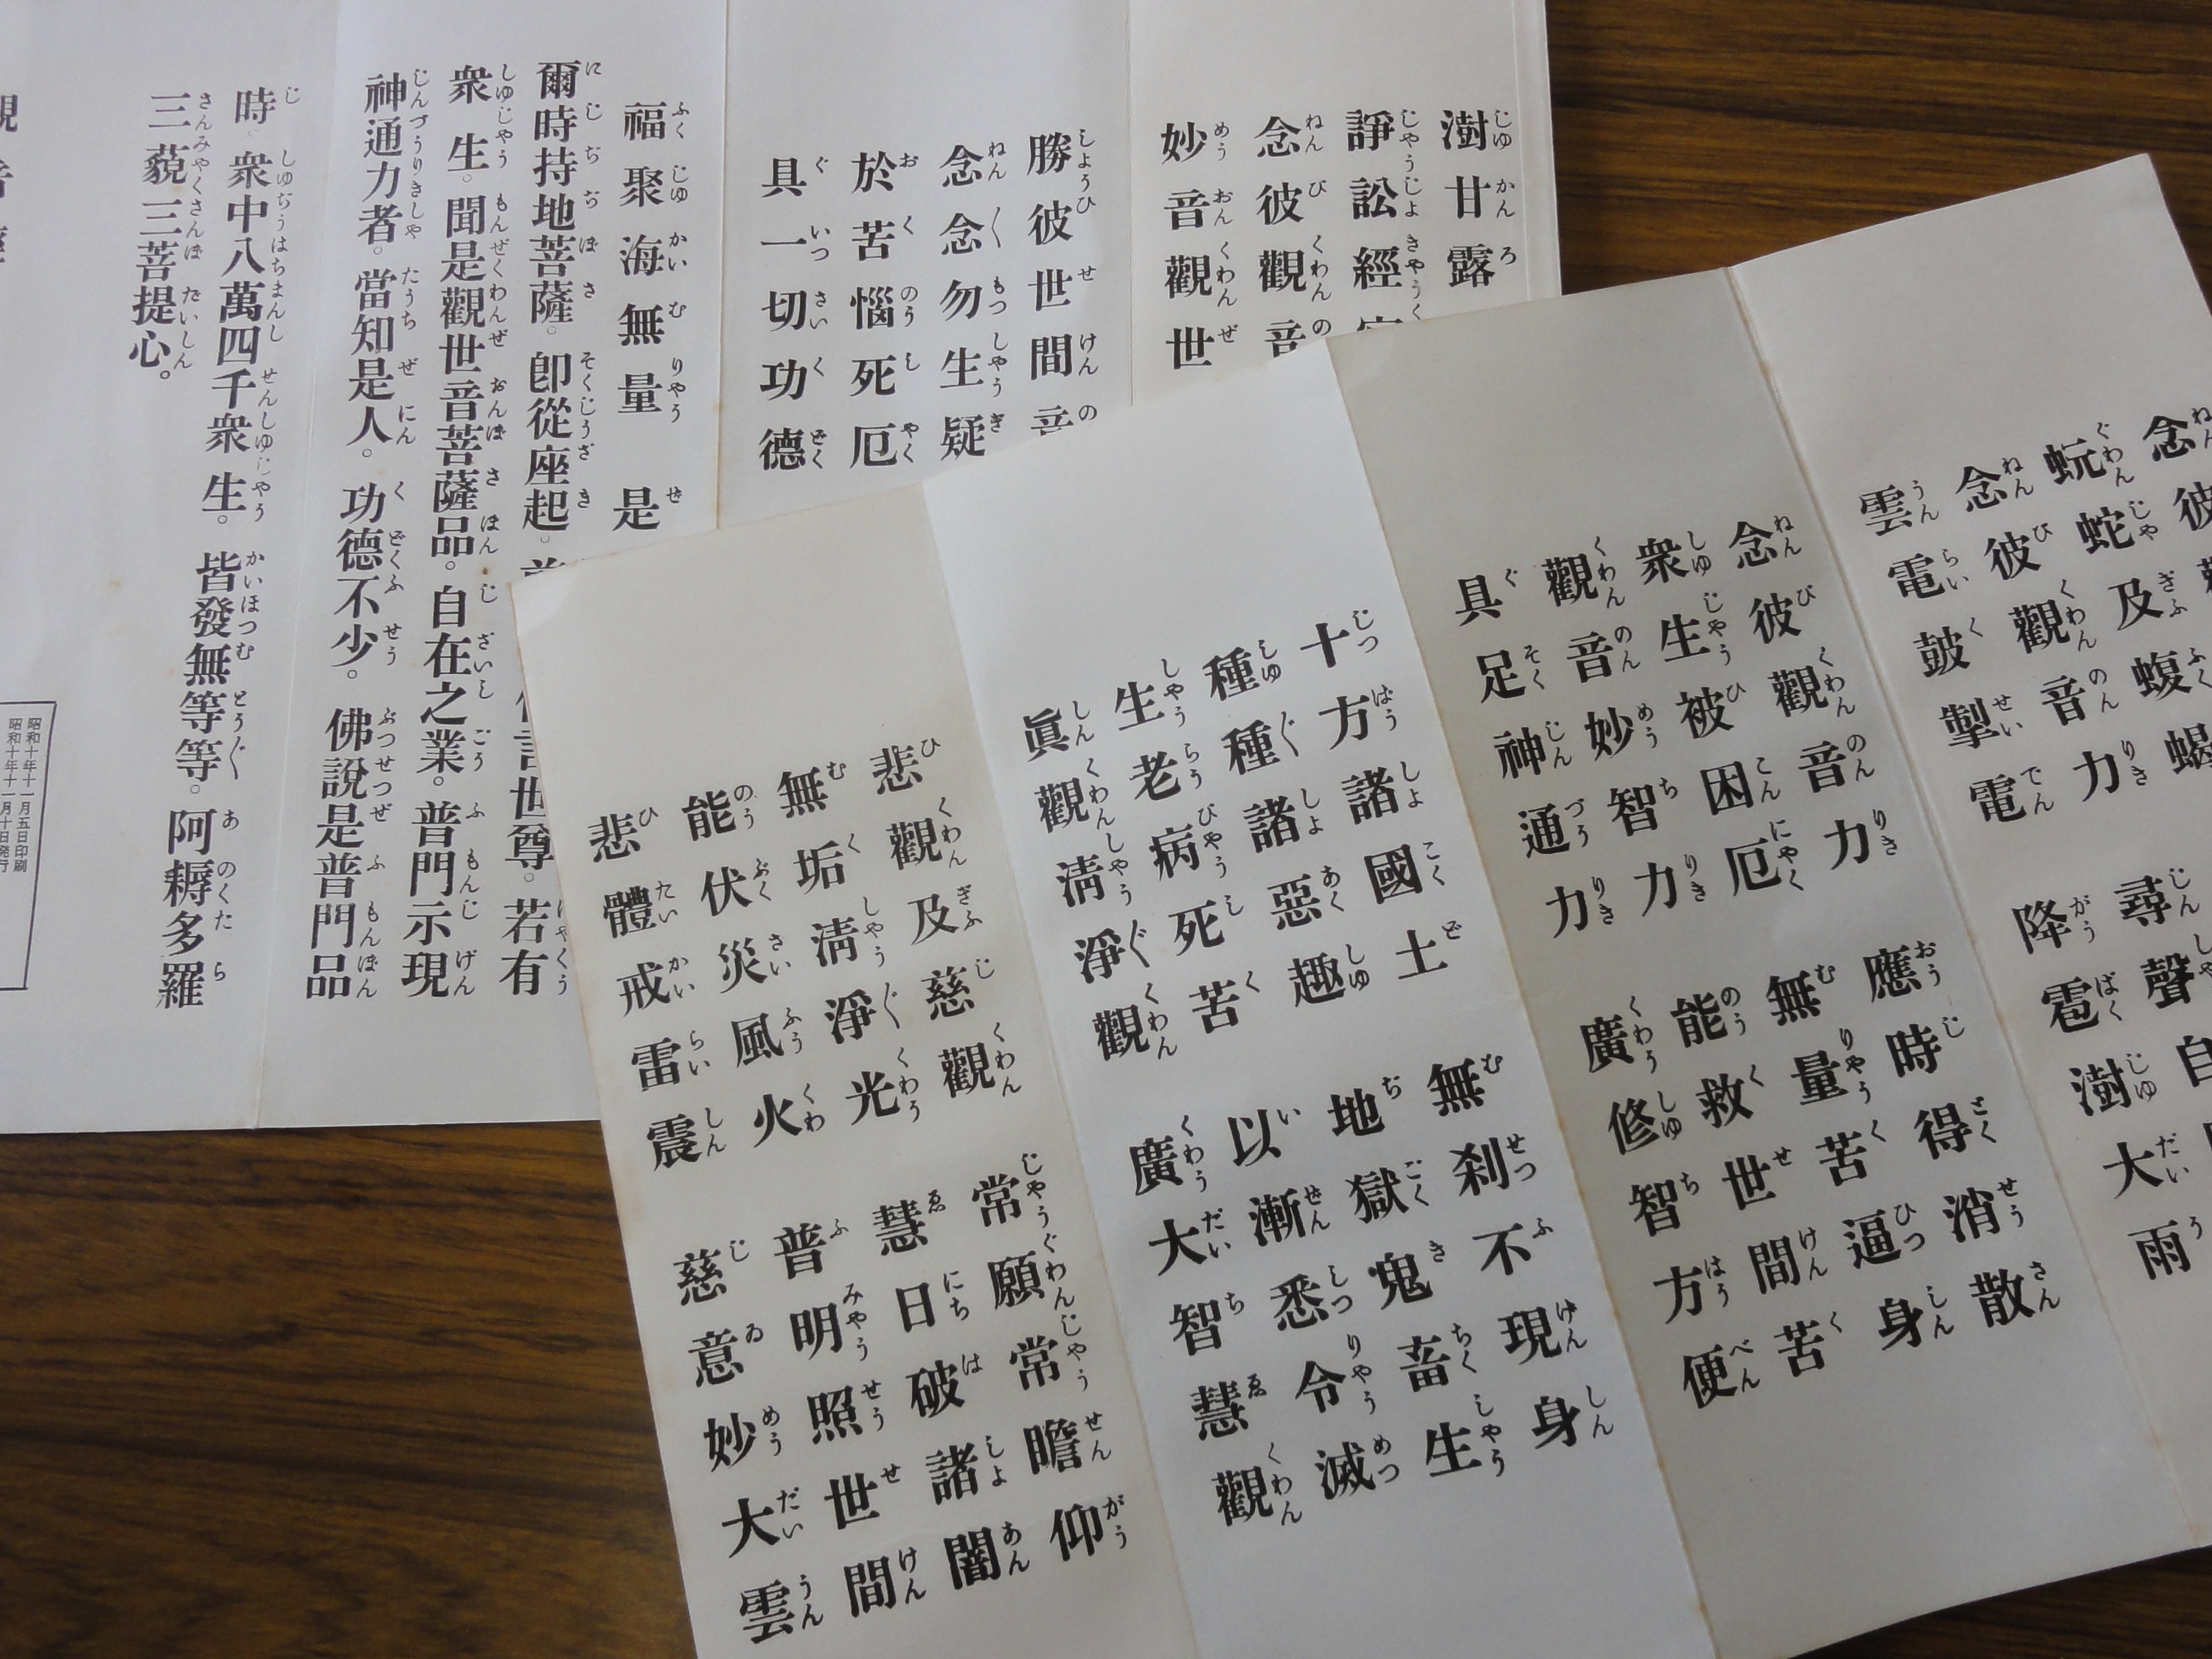 念彼
蚖蛇及蝮蝎
念彼觀音力 尋聲自
雲雷皷掣電 降雹澍大雨
念彼觀音力 應時得消散
衆生被困厄 無量苦逼身
觀音妙智力 能救世間苦
具足神通力 廣修智方便
十方諸國土 無刹不現身
種種諸惡趣 地獄鬼畜生
生老病死苦 以漸悉令滅
眞觀淸淨觀 廣大智慧觀
悲觀及慈觀 常願常瞻仰
無垢淸淨光 慧日破諸闇
能伏災風火 普明照世間
悲體戒雷震 慈意妙大雲
澍甘露
諍訟經
念彼觀音
妙音觀世
勝彼世間音
念念勿生疑
於苦惱死厄
具一切功德
福聚海無量 是
爾時持地菩薩。卽從座起。 世尊。若有
衆生。聞是觀世音菩薩品。自在之業。普門示現
神通力者。當知是人。功德不少。佛說是普門品
時。衆中八萬四千衆生。皆發無等等。阿耨多羅
三藐三菩提心。
昭和十年十一月五日印刷
昭和十年十一月十日発行